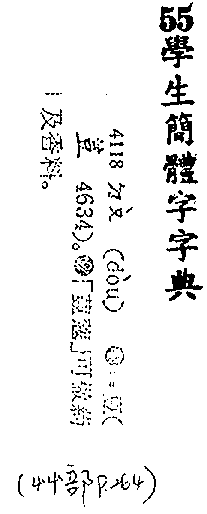 55學生簡體字字典
4118 ㄉㄡˋ (dòu) ㊀=豆(
荳 4634)。㊁「荳蔻」可做藥
及香料。
(艸部P.264)